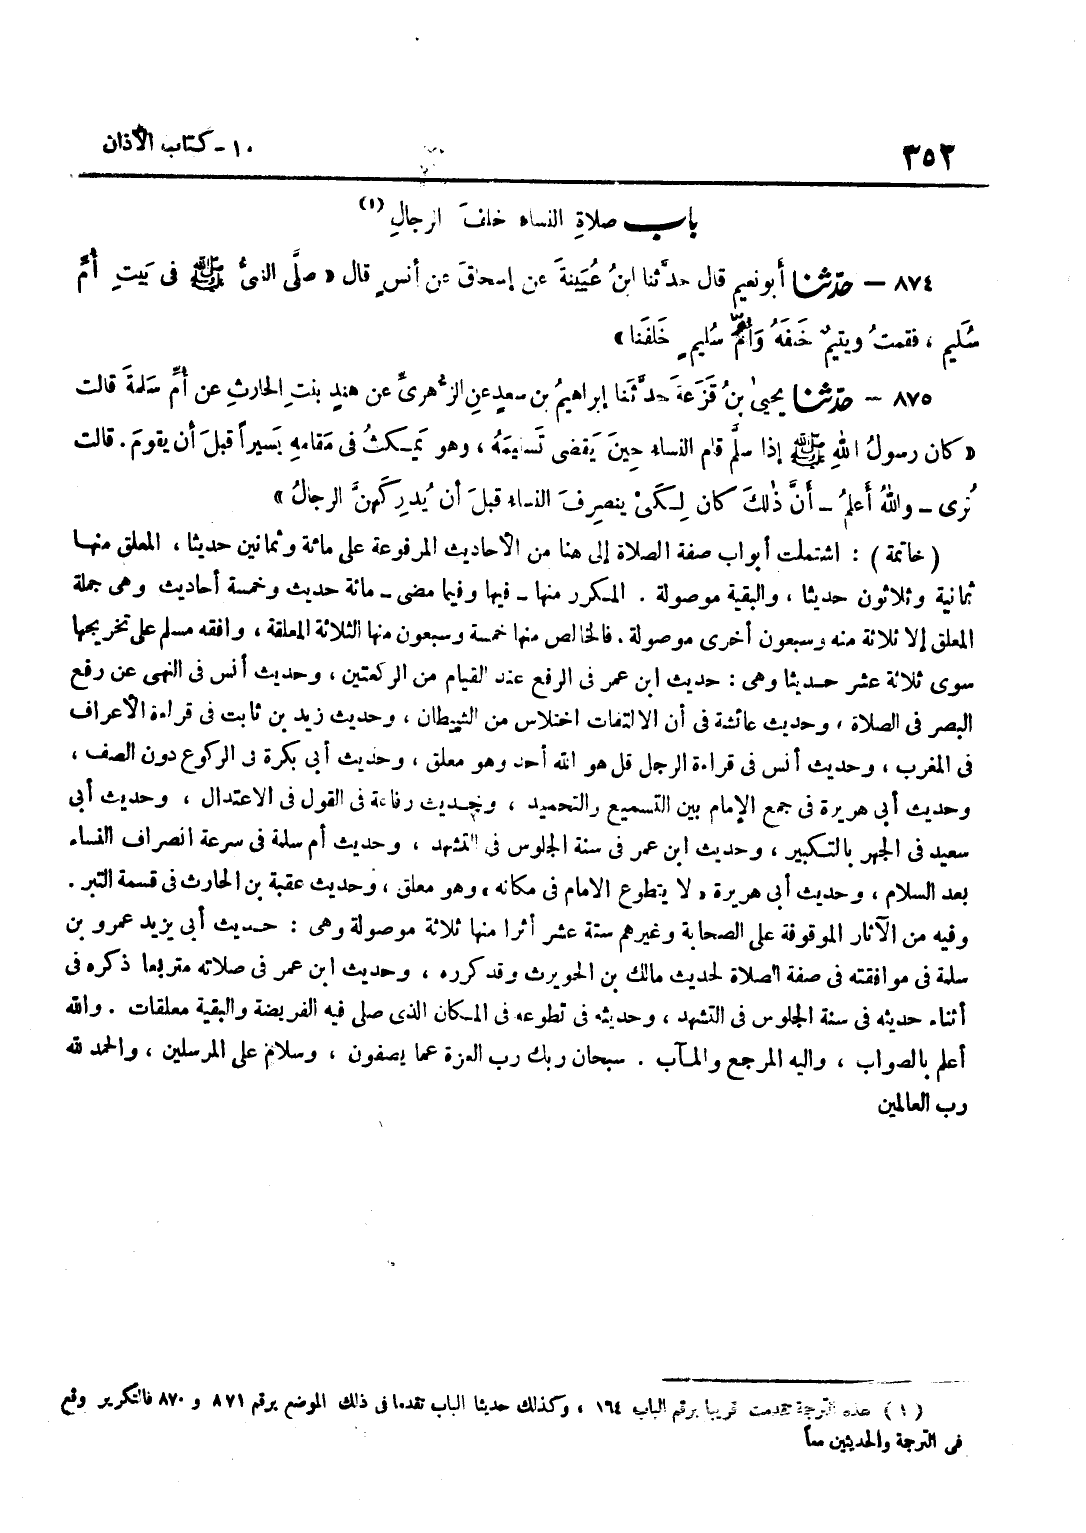 ٣٥٢
١٠ - كتاب الأذان
باب صلاةِ النساء خلفَ الرجالِ (١)
٨٧٤ — حدّثنا أبو نعيم قال حدَّثنا ابنُ عُيَينةَ عن إسحاقَ عن أنسٍ قال « صلَّى النبىُّ ﷺ فى بَيتِ أُمِّ
سُليم ، فقمتُ ويتيمٌ خَلفَهُ وأمُّ سُليمٍ خَلفَنا »
٨٧٥ — حدّثنا يحيىٰ بنُ قَزَعةَ حدَّثَنا إبراهيمُ بن سعيد عنِ الزُّهرىِّ عن هندٍ بنتِ الحارثِ عن أُمِّ سَلمةَ قالت
« كان رسولُ اللهِ ﷺ إذا سلَّم قام النساء حِينَ يَقضى تَسليمَهُ ، وهو يَمكثُ فى مَقامهِ يَسيراً قبلَ أن يقومَ . قالت
نُرى – واللهُ أَعلمُ – أنَّ ذٰلكَ كان لِكَىْ ينصرِفَ النساء قبلَ أن يُدرِكَهنَّ الرجالُ »
( خاتمة ) : اشتملت أبواب صفة الصلاة إلى هنا من الأحاديث المرفوعة على مائة وثمانين حديثا ، المعلق منها
ثمانية وثلاثون حديثا ، والبقية موصولة . المكرر منها – فيها وفيما مضى – مائة حديث وخمسة أحاديث وهى جملة
المعلق إلا ثلاثة منه وسبعون أخرى موصولة . فالخالص منها خمسة وسبعون منها الثلاثة المعلقة ، وافقه مسلم على تخريجها
سوى ثلاثة عشر حديثا وهى : حديث ابن عمر فى الرفع عند القيام من الركعتين ، وحديث أنس فى النهى عن رفع
البصر فى الصلاة ، وحديث عائشة فى أن الالتفات اختلاس من الشيطان ، وحديث زيد بن ثابت فى قراءة الأعراف
فى المغرب ، وحديث أنس فى قراءة الرجل قل هو الله أحد وهو معلق ، وحديث أبى بكرة فى الركوع دون الصف ،
وحديث أبى هريرة فى جمع الإمام بين التسميع والتحميد ، وحديث رفاعة فى القول فى الاعتدال ، وحديث أبى
سعيد فى الجهر بالتكبير ، وحديث ابن عمر فى سنة الجلوس فى التشهد ، وحديث أم سلمة فى سرعة انصراف النساء
بعد السلام ، وحديث أبى هريرة « لا يتطوع الامام فى مكانه » وهو معلق ، وحديث عقبة بن الحارث فى قسمة التبر .
وفيه من الآثار الموقوفة على الصحابة وغيرهم ستة عشر أثرا منها ثلاثة موصولة وهى : حديث أبى يزيد عمرو بن
سلمة فى موافقته فى صفة الصلاة لحديث مالك بن الحويرث وقد كرره ، وحديث ابن عمر فى صلاته متربعا ذكره فى
أثناء حديثه فى سنة الجلوس فى التشهد ، وحديثه فى تطوعه فى المكان الذى صلى فيه الفريضة والبقية معلقات . والله
أعلم بالصواب ، واليه المرجع والمآب . سبحان ربك رب العزة عما يصفون ، وسلام على المرسلين ، والحمد لله
رب العالمين
( ١ ) هذه الترجمة تقدمت قريبا برقم الباب ١٦٤ ، وكذلك حديثا الباب تقدما فى ذلك الموضع برقم ٨٧١ و ٨٧٠ فالتكرير وقع
فى الترجمة والحديثين معاً